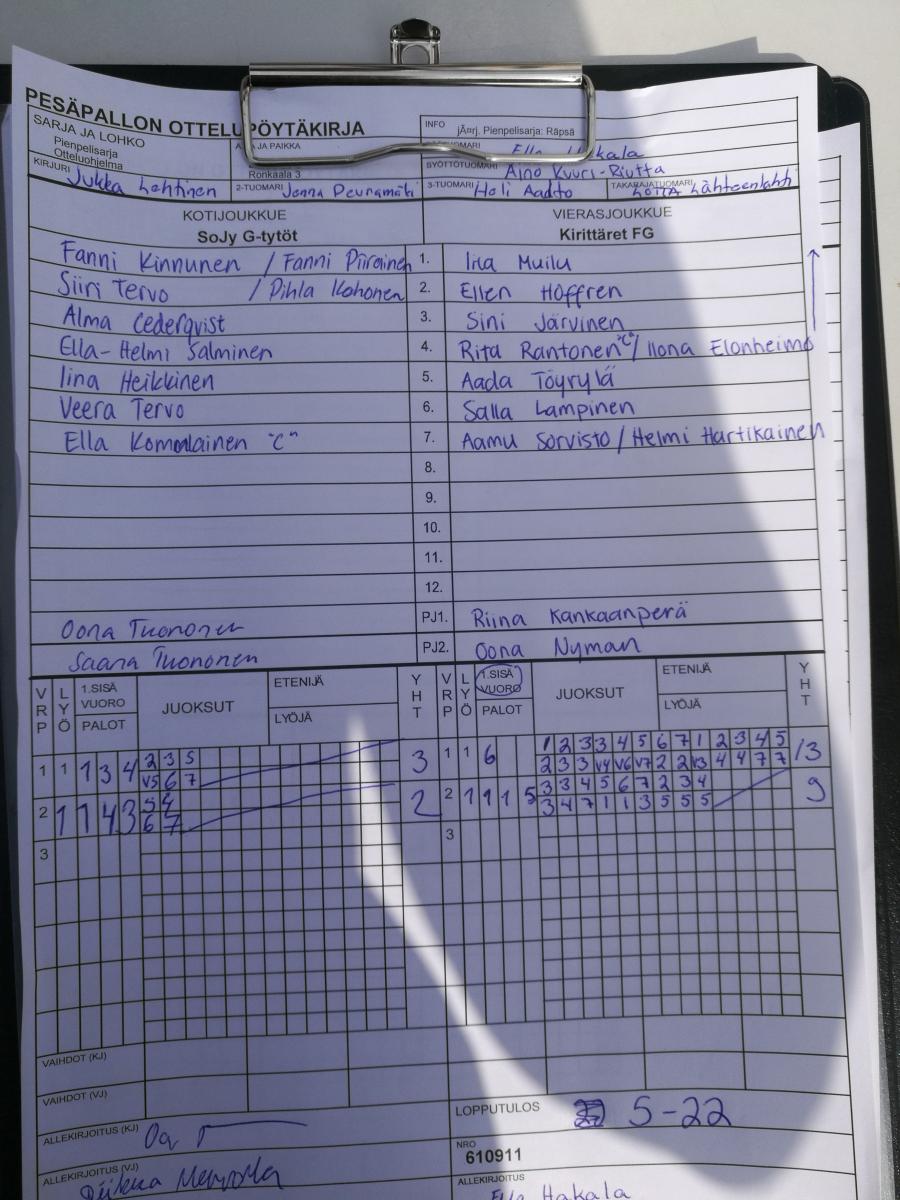 PESÄPALLON OTTELUPÖYTÄKIRJA
SARJA JA LOHKO
Pienpelisarja
Otteluohjelma
JA PAIKKA
Ronkaala 3
INFO
jÃ¤rj. Pienpelisarja: Räpsä
Ella Hakala
SYÖTTÖTUOMARI Aino Kuuri-Riutta
KIRJURI Jukka Lehtinen
2-TUOMARI Jonna Peuramäki
3-TUOMARI Heli Aadto
TAKARAJATUOMARI Lotta Lähteenlahti
KOTIJOUKKUE
SoJy G-tytöt
VIERASJOUKKUE
Kirittäret FG
Fanni Kinnunen / Fanni Piirainen 1. Iina Muilu
Siiri Tervo / Pihla Kohonen 2. Ellen Hoffren
Alma Cederqvist 3. Sini Järvinen
Ella-Helmi Salminen 4. Rita Rantonen "C" / Ilona Elonheimo
Iina Heikkinen 5. Aada Töyrylä
Veera Tervo 6. Salla Lampinen
Ella Kommalainen "C" 7. Aamu Sorvisto / Helmi Hartikainen
8.
9.
10.
11.
12.
Oona Tuononen PJ1. Riina Kankaanperä
Saana Tuononen PJ2. Oona Nyman
VRP LYÖ 1.SISÄ VUORO PALOT JUOKSUT ETENIJÄ LYÖJÄ YHT VRP LYÖ 1.SISÄ VUORO PALOT JUOKSUT ETENIJÄ LYÖJÄ YHT
1 1 1 3 4 2 3 5 3 1 1 6 1 2 3 3 4 5 6 7 1 2 3 4 5 13
V5 6 7 2 3 3 V4 V6 V7 2 2 V3 4 4 7 7
2 1 1 4 3 3 4 2 2 1 1 1 5 3 3 4 5 6 7 2 3 4 9
6 7 3 4 7 1 1 3 5 5 5
3 3
VAIHDOT (KJ)
VAIHDOT (VJ)
ALLEKIRJOITUS (KJ)
LOPPUTULOS 5-22
NRO
610911
ALLEKIRJOITUS (VJ)
ALLEKIRJOITUS
Ella Hakala